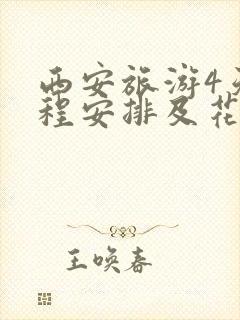 西安旅游4天
程安排及花
王唤春